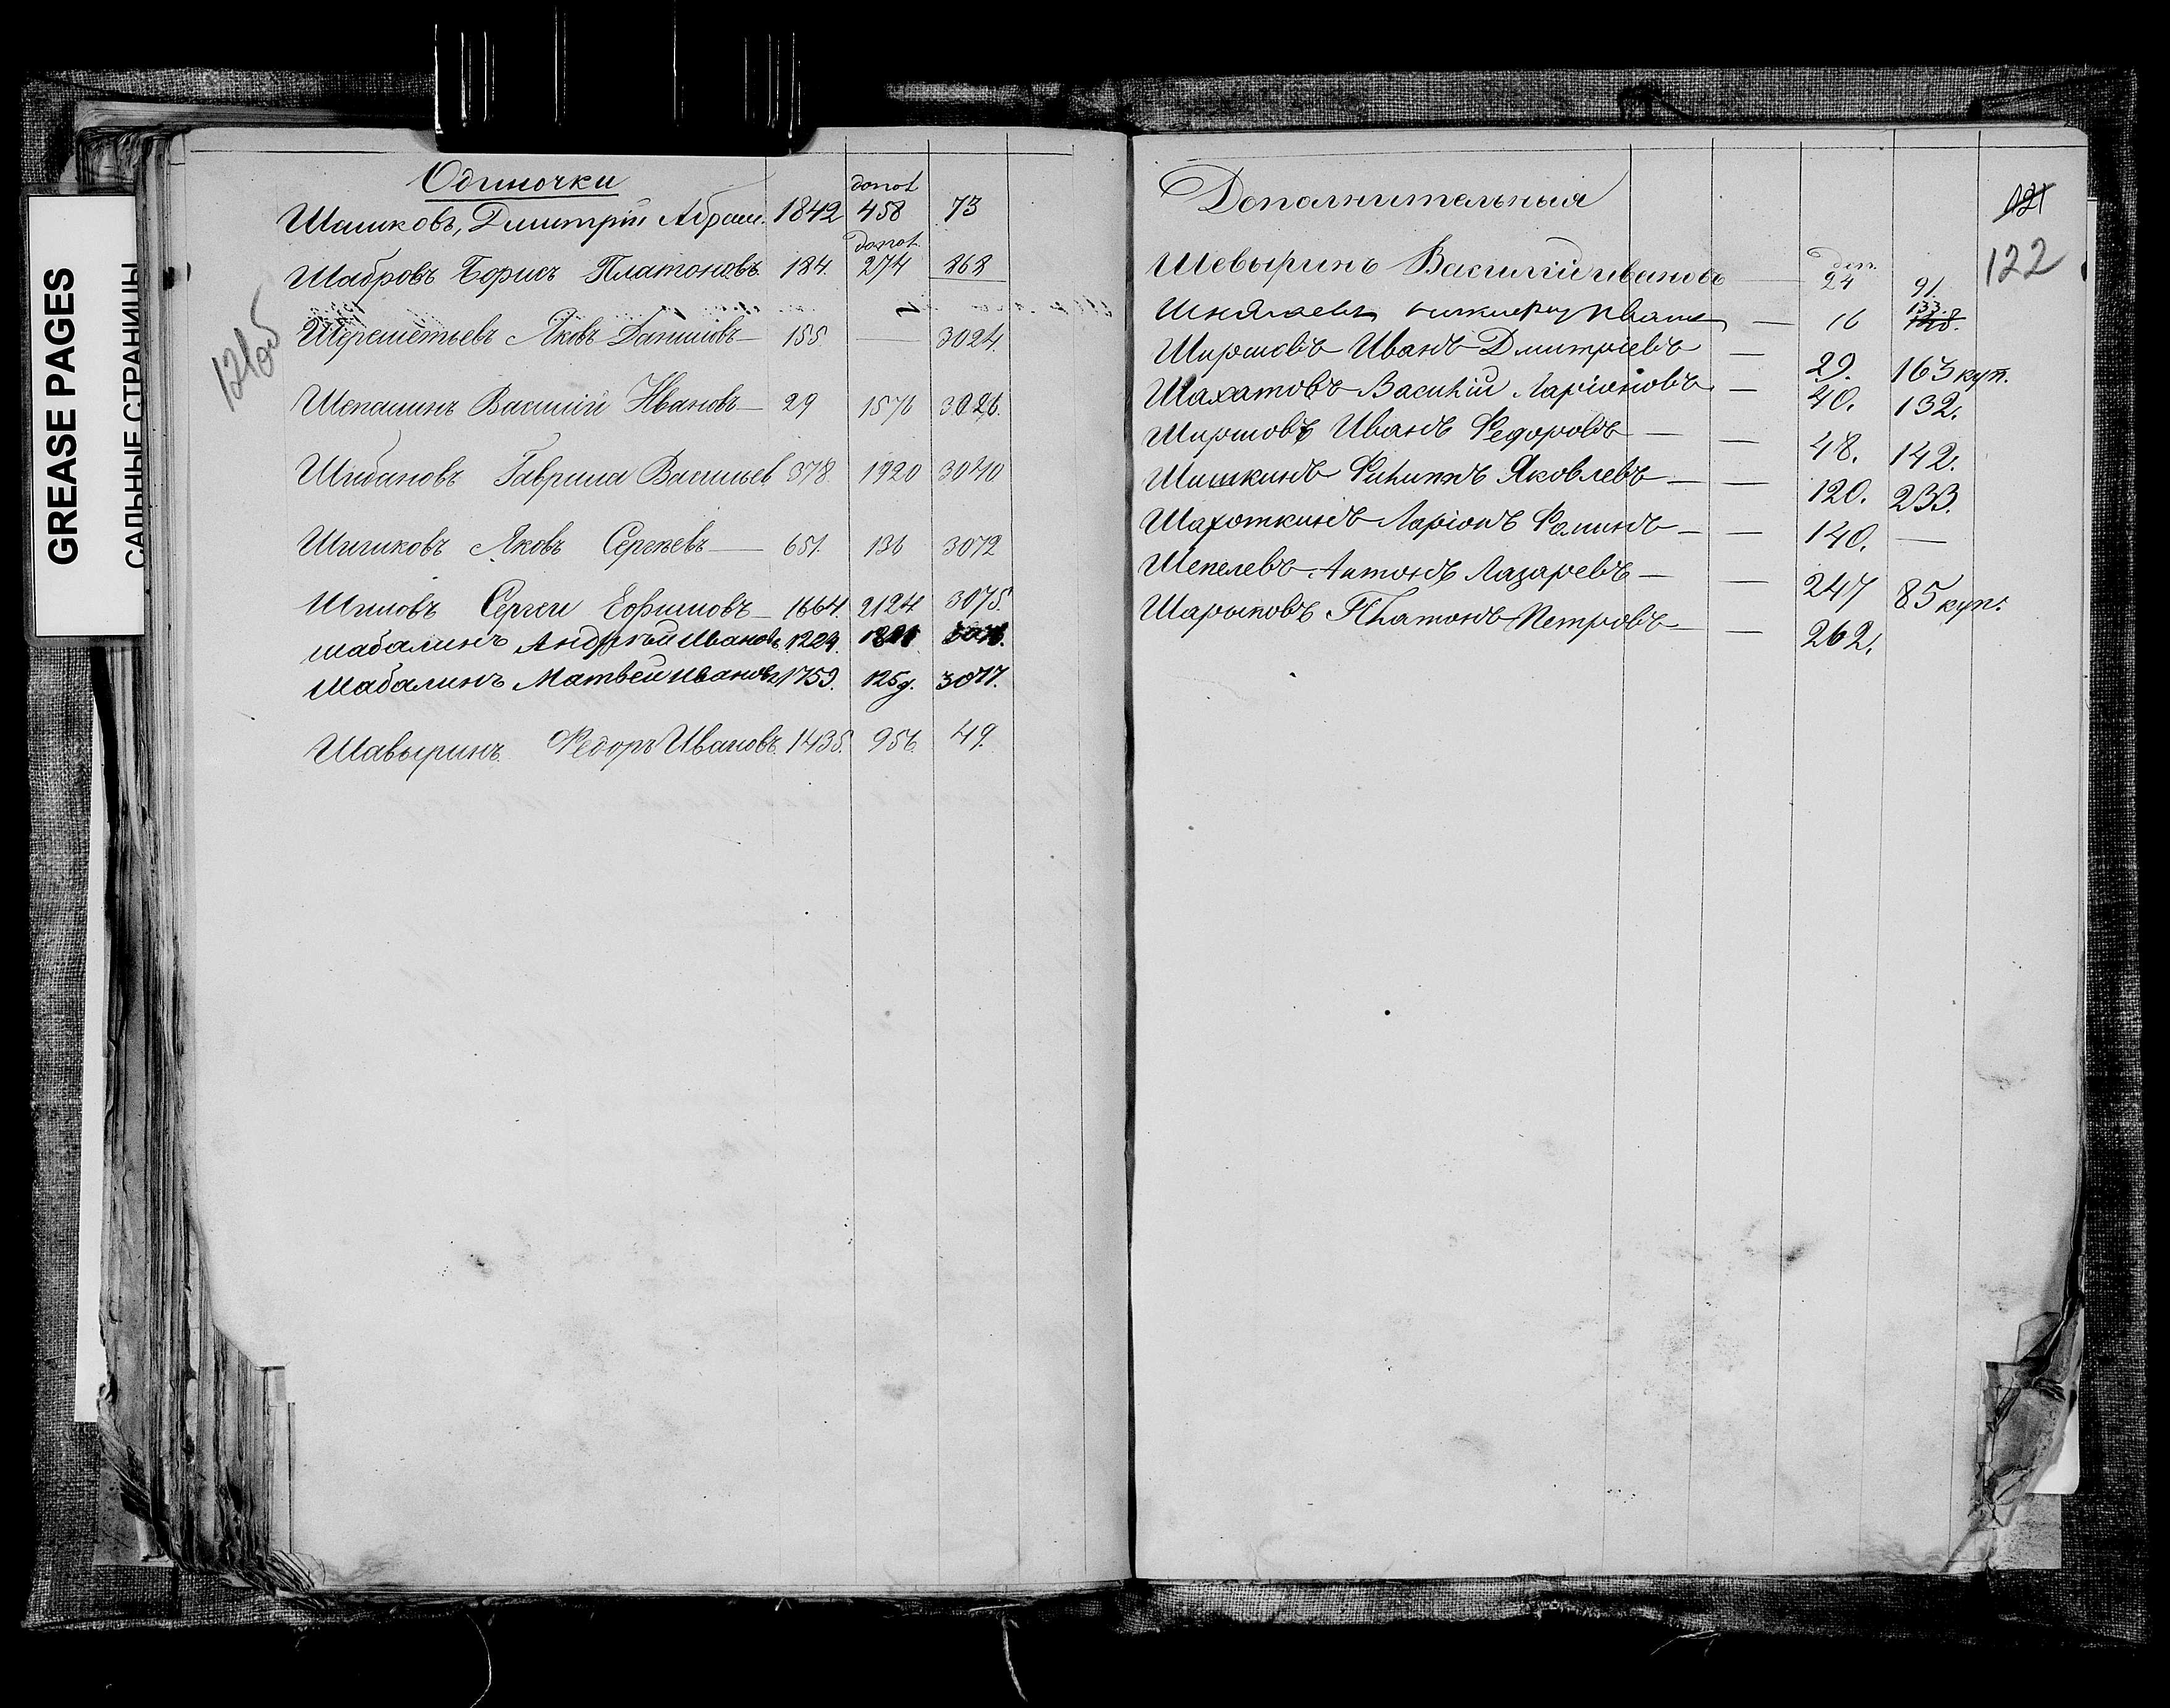 GREASE PAGES
САЛЬНЫЕ СТРАНИЦЫ
121об
Одиночки
Шашковъ, Дмитрій Абрам. 1842 допол. 458 73
Шабровъ Борисъ Платоновъ 184. допол. 274 868
Шереметьевъ Яковъ Даниловъ — 155 — 3024.
Шепашинъ Василій Ивановъ — 29 1576 3026.
Шибановъ Гаврила Васильев 378. 1920 3040
Шишковъ Яковъ Сергѣевъ — 651. 136 3072
Шиловъ Сергѣй Ефимовъ — 1664. 2124 3075.
Шабалинъ Андрей Ивановъ 1224.
Шабалинъ Матвей Ивановъ 1753. 1259. 3077.
Шавыринъ Федоръ Ивановъ 1435. 956. 49.
Дополнительныя
121
122
Шевыринъ Василій Ивановъ — доп. 24 91.
— 16 133. 128.
Ширшовъ Иванъ Дмитріевъ — 29. 163 куп.
Шахатовъ Василій Ларіоновъ — 40. 132.
Ширшовъ Иванъ Федоровъ — — 48. 142.
Шишкинъ Филиппъ Яковлевъ — — 120. 233.
Шахоткинъ Ларіонъ Фоминъ — — 140. —
Шепелевъ Антонъ Лазаревъ — — 247 85 куп.
Шарыповъ Платонъ Петровъ — — 262.